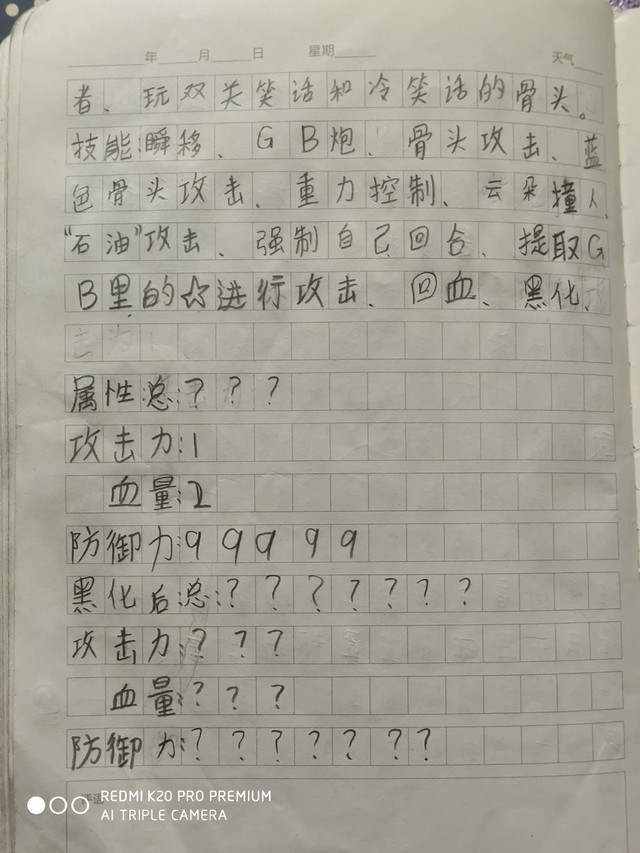 年 月 日 星期 天气
者、玩双关笑话和冷笑话的骨头。
技能:瞬移、GB炮、骨头攻击、蓝
色骨头攻击、重力控制、云朵撞人、
"石油"攻击、强制自己回合、提取G
B里的☆进行攻击、回血、黑化、
属性总:???
攻击力:1
血量:2
防御力:99999
黑化后总:???????
攻击力:???
血量:???
防御力:???????
REDMI K20 PRO PREMIUM
AI TRIPLE CAMERA